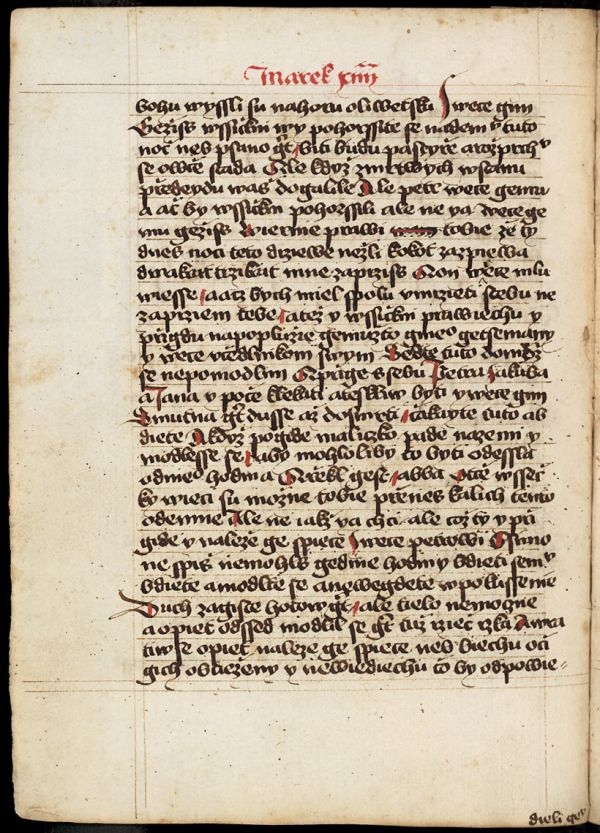 Marek xiiii
bohu wyssli su nahoru oliwetsku I wece gim
Geziss wssickni wy pohorssite se nademnu tuto
noc neb psano gt biti budu pastyrze a rozprchnu
se owce stada Ale kdyz zmrtwych wstanu
przedeydu was dogalile Ale petr wece gemu
a ac by wssickni pohorssili ale ne ya wece ge
mu geziss wierne prawi tobie ze ty
dnes noci teto drziewe nezli kokot zazpiewa
dwakrat trzikrat mne zaprziss A on wece mlu
wiesse a acz bych miel spolu vmrzieti stebu ne
zaprziem tebe a tez y wssickni prawiechu y
przigdu napopluzie gemuzto gmeno getsemany
y wece vcedlnikom swym Sedte tuto domdz
se nepomodlim A przige ssebu Petra Jakuba
a Jana y pocze lekati a teskliw byti y wece gim
Smutna gt dusse az dosmrti cakayte tuto a b
diete A kdyz pogide maliczko pade nazemi y
modlesse se aby mohlo liby to byti odessla
odneho hodina A rzekl gest abba Otcze wssec
ky wieci su mozne tobie przenes kalich tento
odemne Ale ne iakz ya chci ale coz ty y przi
gide y naleze ge spiece I wece petrowi Simo
ne spis nemohls gedine hodiny bdieti semnu
bdiete a modlte se at newegdete wpokussenie
Duch zagiste hotow gt ale tielo nemozne
a opiet odssed modlil se gt tuz rziec rzka A wra
tiw se opiet naleze ge spiece neb biechu oci
gich obtiezeny y newiediechu co by odpowie=
dieli gemu